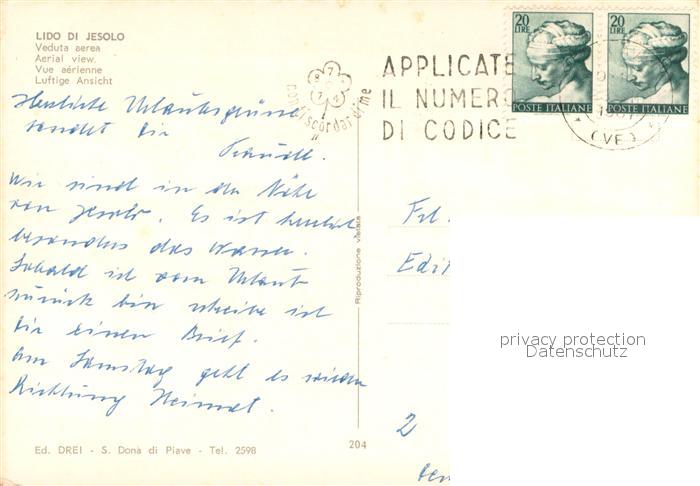 LIDO DI JESOLO
Veduta aerea
Aerial view.
Vue aérienne
Luftige Ansicht
20
LIRE
POSTE ITALIANE
20
LIRE
POSTE ITALIANE
APPLICATE
IL NUMERO
DI CODICE
(VE)
non ti scordar di me
Herzliche Urlaubsgrüsse
sendet dir
Traudl.
Wir sind in der Nähe
von Jesolo. Es ist herrlich
besonders das Wasser.
Sobald ich vom Urlaub
zurück bin schreibe ich
dir einen Brief.
Am Samstag geht es wieder
Richtung Heimat.
Frl.
Edit
2
Riproduzione vietata
privacy protection
Datenschutz
Ed. DREI - S. Donà di Piave - Tel. 2598
204